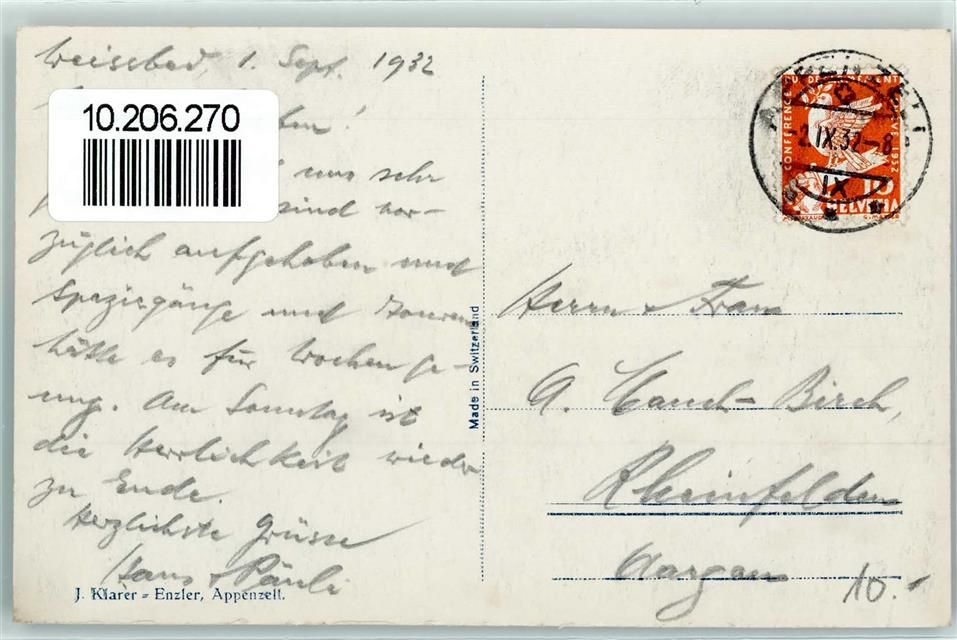 Weissbad, 1. Sept. 1932
10.206.270
uns sehr
sind vor-
züglich aufgehoben und
Spaziergänge und Touren
hätte es für Wochen ge-
nug. Am Sonntag ist
die Herrlichkeit wieder
zu Ende.
Herzlichste Grüsse
Hans + Päuli
J. Klarer - Enzler, Appenzell.
Made in Switzerland
APPENZELL
2.IX.32-8
IX
CONFERENCE DU DESARMEMENT GENEVE 1932
10
HELVETIA
Herrn + Frau
A. Birch,
Rheinfelden
Aargau
10.-